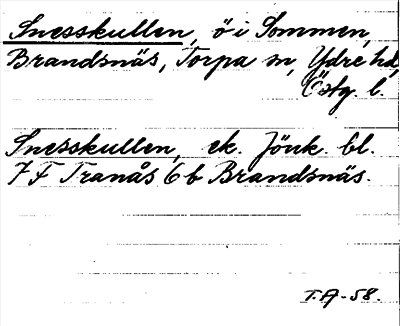 Snesskullen, ö i Sommen,
Brandsnäs, Torpa sn, Ydre hd,
Östg. l.
Snesskullen, ek. Jönk. bl.
7 F Tranås 6 b Brandsnäs.
T.A-58.